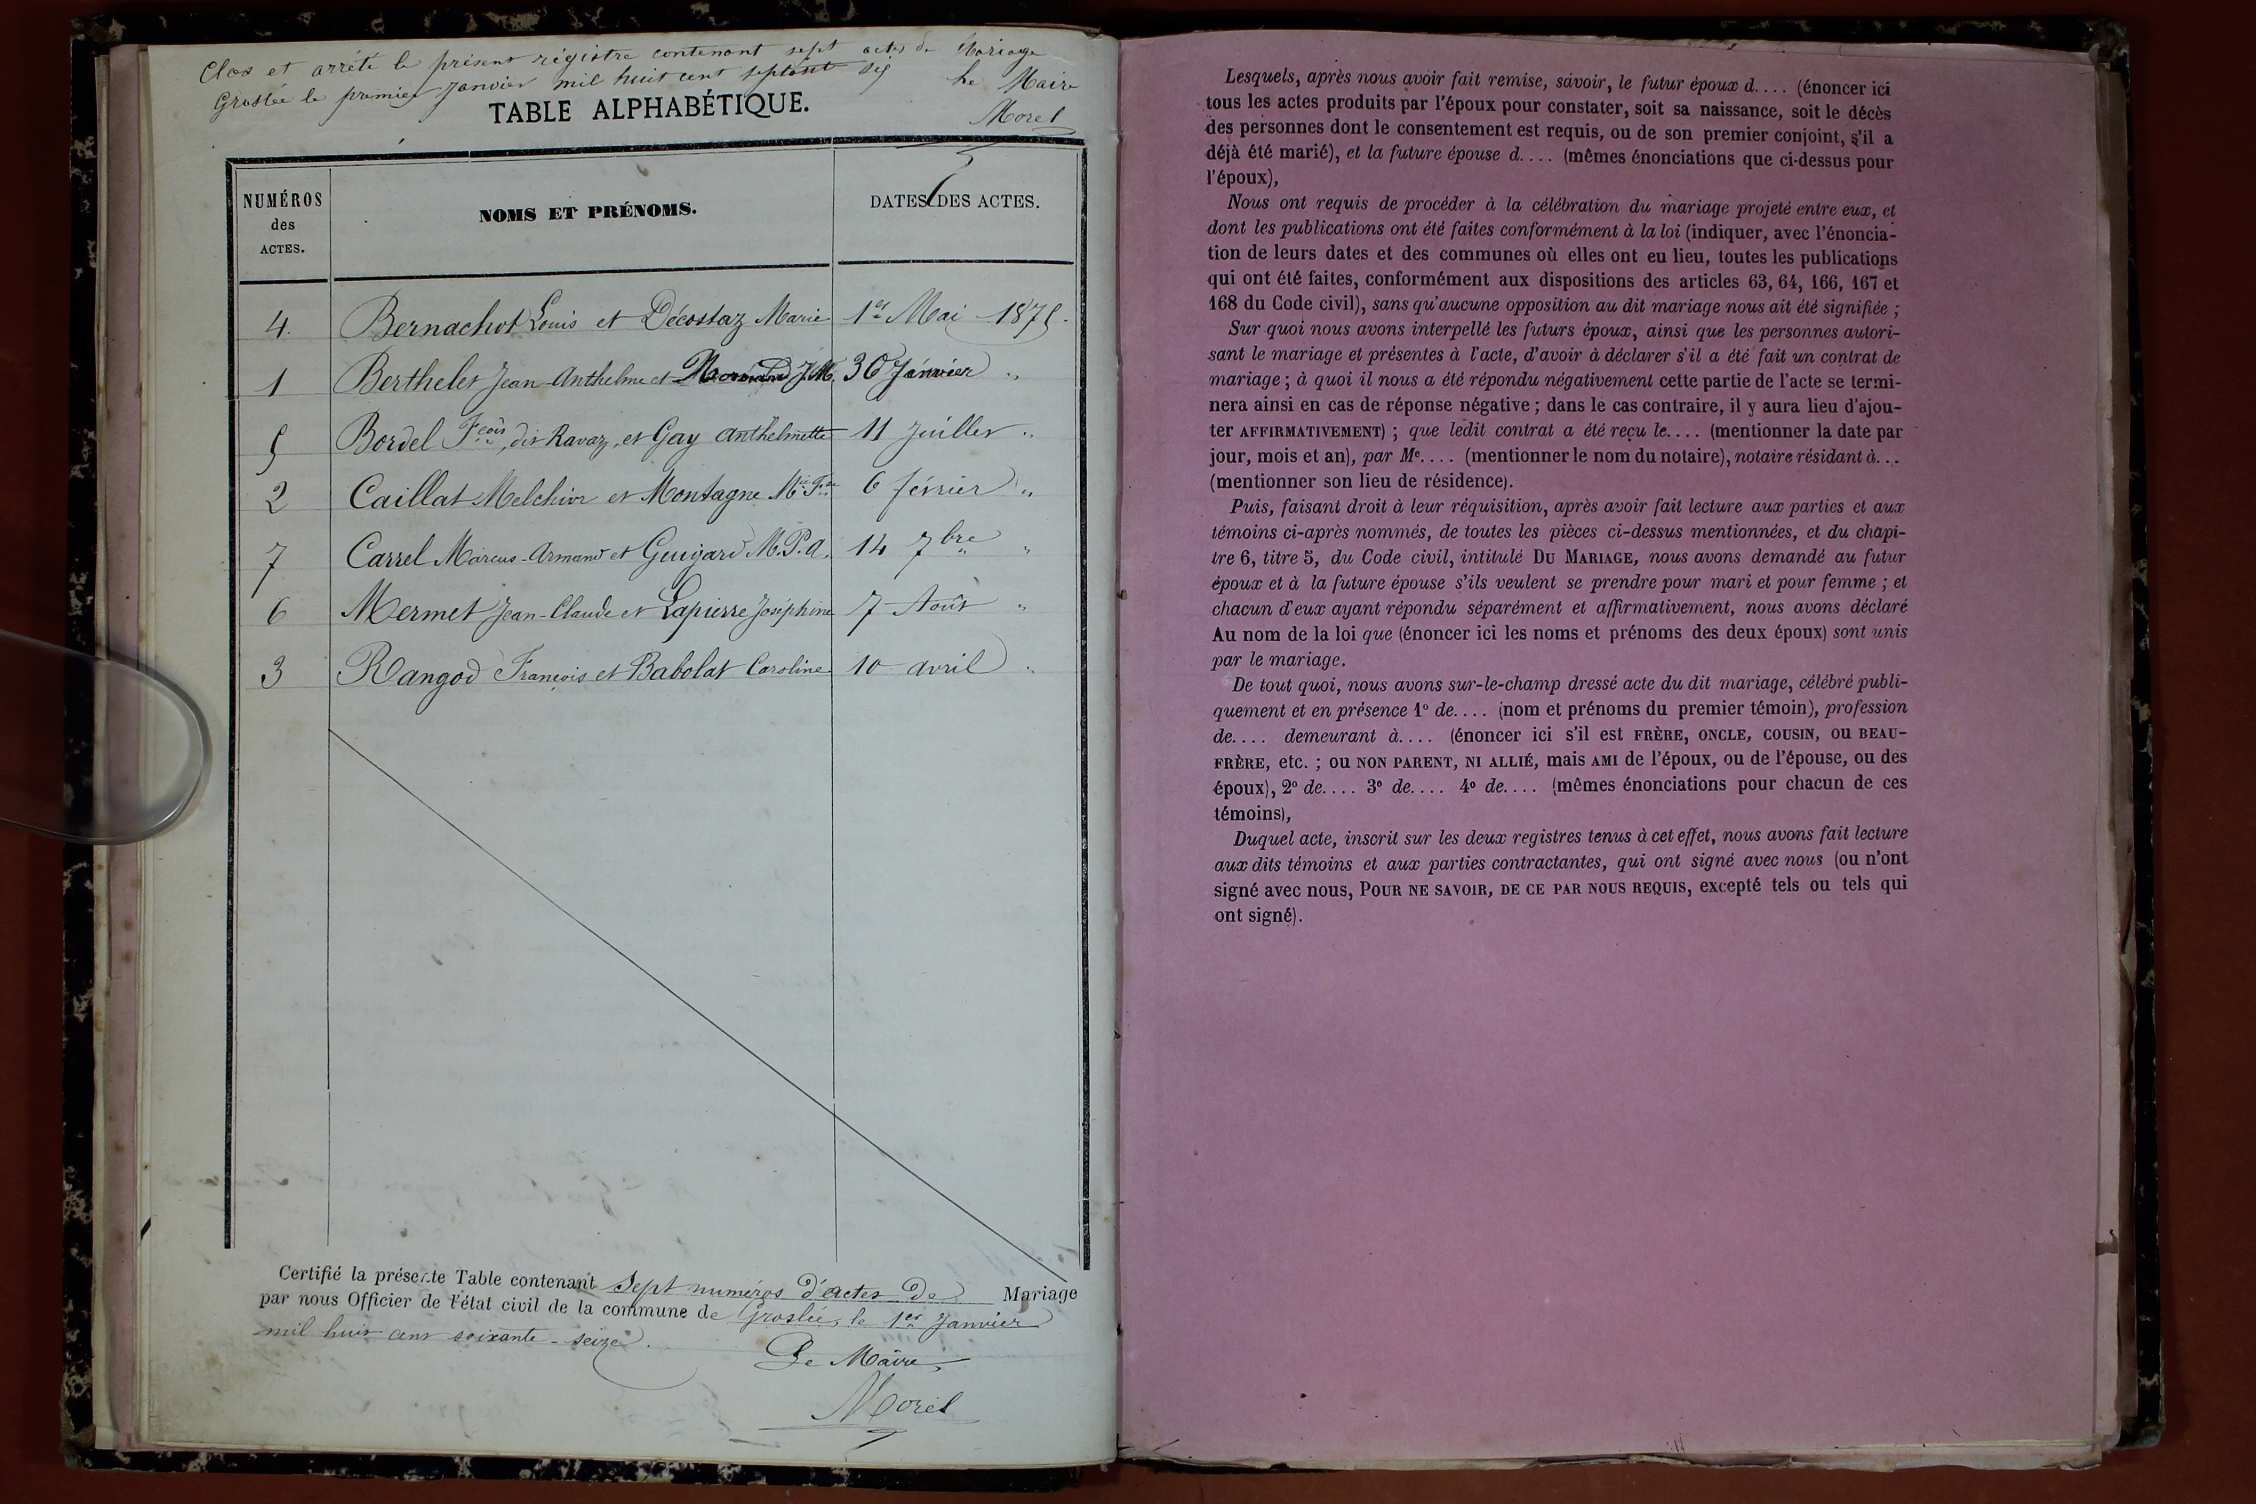 Clos et arrêté le présent régistre contenant sept actes de Mariage
Groslée le premier Janvier mil huit cent septante six Le Maire
Morel
TABLE ALPHABÉTIQUE.
NUMÉROS
des
ACTES.
NOMS ET PRÉNOMS.
DATES DES ACTES.
4. Bernachot Louis et Décostaz Marie 1er Mai 1875.
1 Berthelet Jean-Anthelme et J. M. 30 Janvier "
5 Bordel Fçois, dit Ravaz, et Gay Anthelmette 11 Juillet "
2 Caillat Melchior et Montagne Mie Fse 6 février "
7 Carrel Marcus-Armand et Guigard M. P. A. 14 7bre "
6 Mermet Jean-Claude et Lapierre Joséphine 7 Août "
3 Rangod François et Babolat Caroline 10 avril "
Certifié la présente Table contenant sept numéros d'actes de Mariage
par nous Officier de l'état civil de la commune de Groslée, le 1er Janvier
mil huit cent soixante-seize.
Le Maire,
Morel
Lesquels, après nous avoir fait remise, savoir, le futur époux d.... (énoncer ici
tous les actes produits par l'époux pour constater, soit sa naissance, soit le décès
des personnes dont le consentement est requis, ou de son premier conjoint, s'il a
déjà été marié), et la future épouse d.... (mêmes énonciations que ci-dessus pour
l'époux),
Nous ont requis de procéder à la célébration du mariage projeté entre eux, et
dont les publications ont été faites conformément à la loi (indiquer, avec l'énoncia-
tion de leurs dates et des communes où elles ont eu lieu, toutes les publications
qui ont été faites, conformément aux dispositions des articles 63, 64, 166, 167 et
168 du Code civil), sans qu'aucune opposition au dit mariage nous ait été signifiée ;
Sur quoi nous avons interpellé les futurs époux, ainsi que les personnes autori-
sant le mariage et présentes à l'acte, d'avoir à déclarer s'il a été fait un contrat de
mariage ; à quoi il nous a été répondu négativement cette partie de l'acte se termi-
nera ainsi en cas de réponse négative ; dans le cas contraire, il y aura lieu d'ajou-
ter AFFIRMATIVEMENT) ; que ledit contrat a été reçu le.... (mentionner la date par
jour, mois et an), par Me.... (mentionner le nom du notaire), notaire résidant à...
(mentionner son lieu de résidence).
Puis, faisant droit à leur réquisition, après avoir fait lecture aux parties et aux
témoins ci-après nommés, de toutes les pièces ci-dessus mentionnées, et du chapi-
tre 6, titre 5, du Code civil, intitulé DU MARIAGE, nous avons demandé au futur
époux et à la future épouse s'ils veulent se prendre pour mari et pour femme ; et
chacun d'eux ayant répondu séparément et affirmativement, nous avons déclaré
Au nom de la loi que (énoncer ici les noms et prénoms des deux époux) sont unis
par le mariage.
De tout quoi, nous avons sur-le-champ dressé acte du dit mariage, célébré publi-
quement et en présence 1º de.... (nom et prénoms du premier témoin), profession
de.... demeurant à.... (énoncer ici s'il est FRÈRE, ONCLE, COUSIN, OU BEAU-
FRÈRE, etc. ; ou NON PARENT, NI ALLIÉ, mais AMI de l'époux, ou de l'épouse, ou des
époux), 2º de.... 3º de.... 4º de.... (mêmes énonciations pour chacun de ces
témoins),
Duquel acte, inscrit sur les deux registres tenus à cet effet, nous avons fait lecture
aux dits témoins et aux parties contractantes, qui ont signé avec nous (ou n'ont
signé avec nous, POUR NE SAVOIR, DE CE PAR NOUS REQUIS, excepté tels ou tels qui
ont signé).